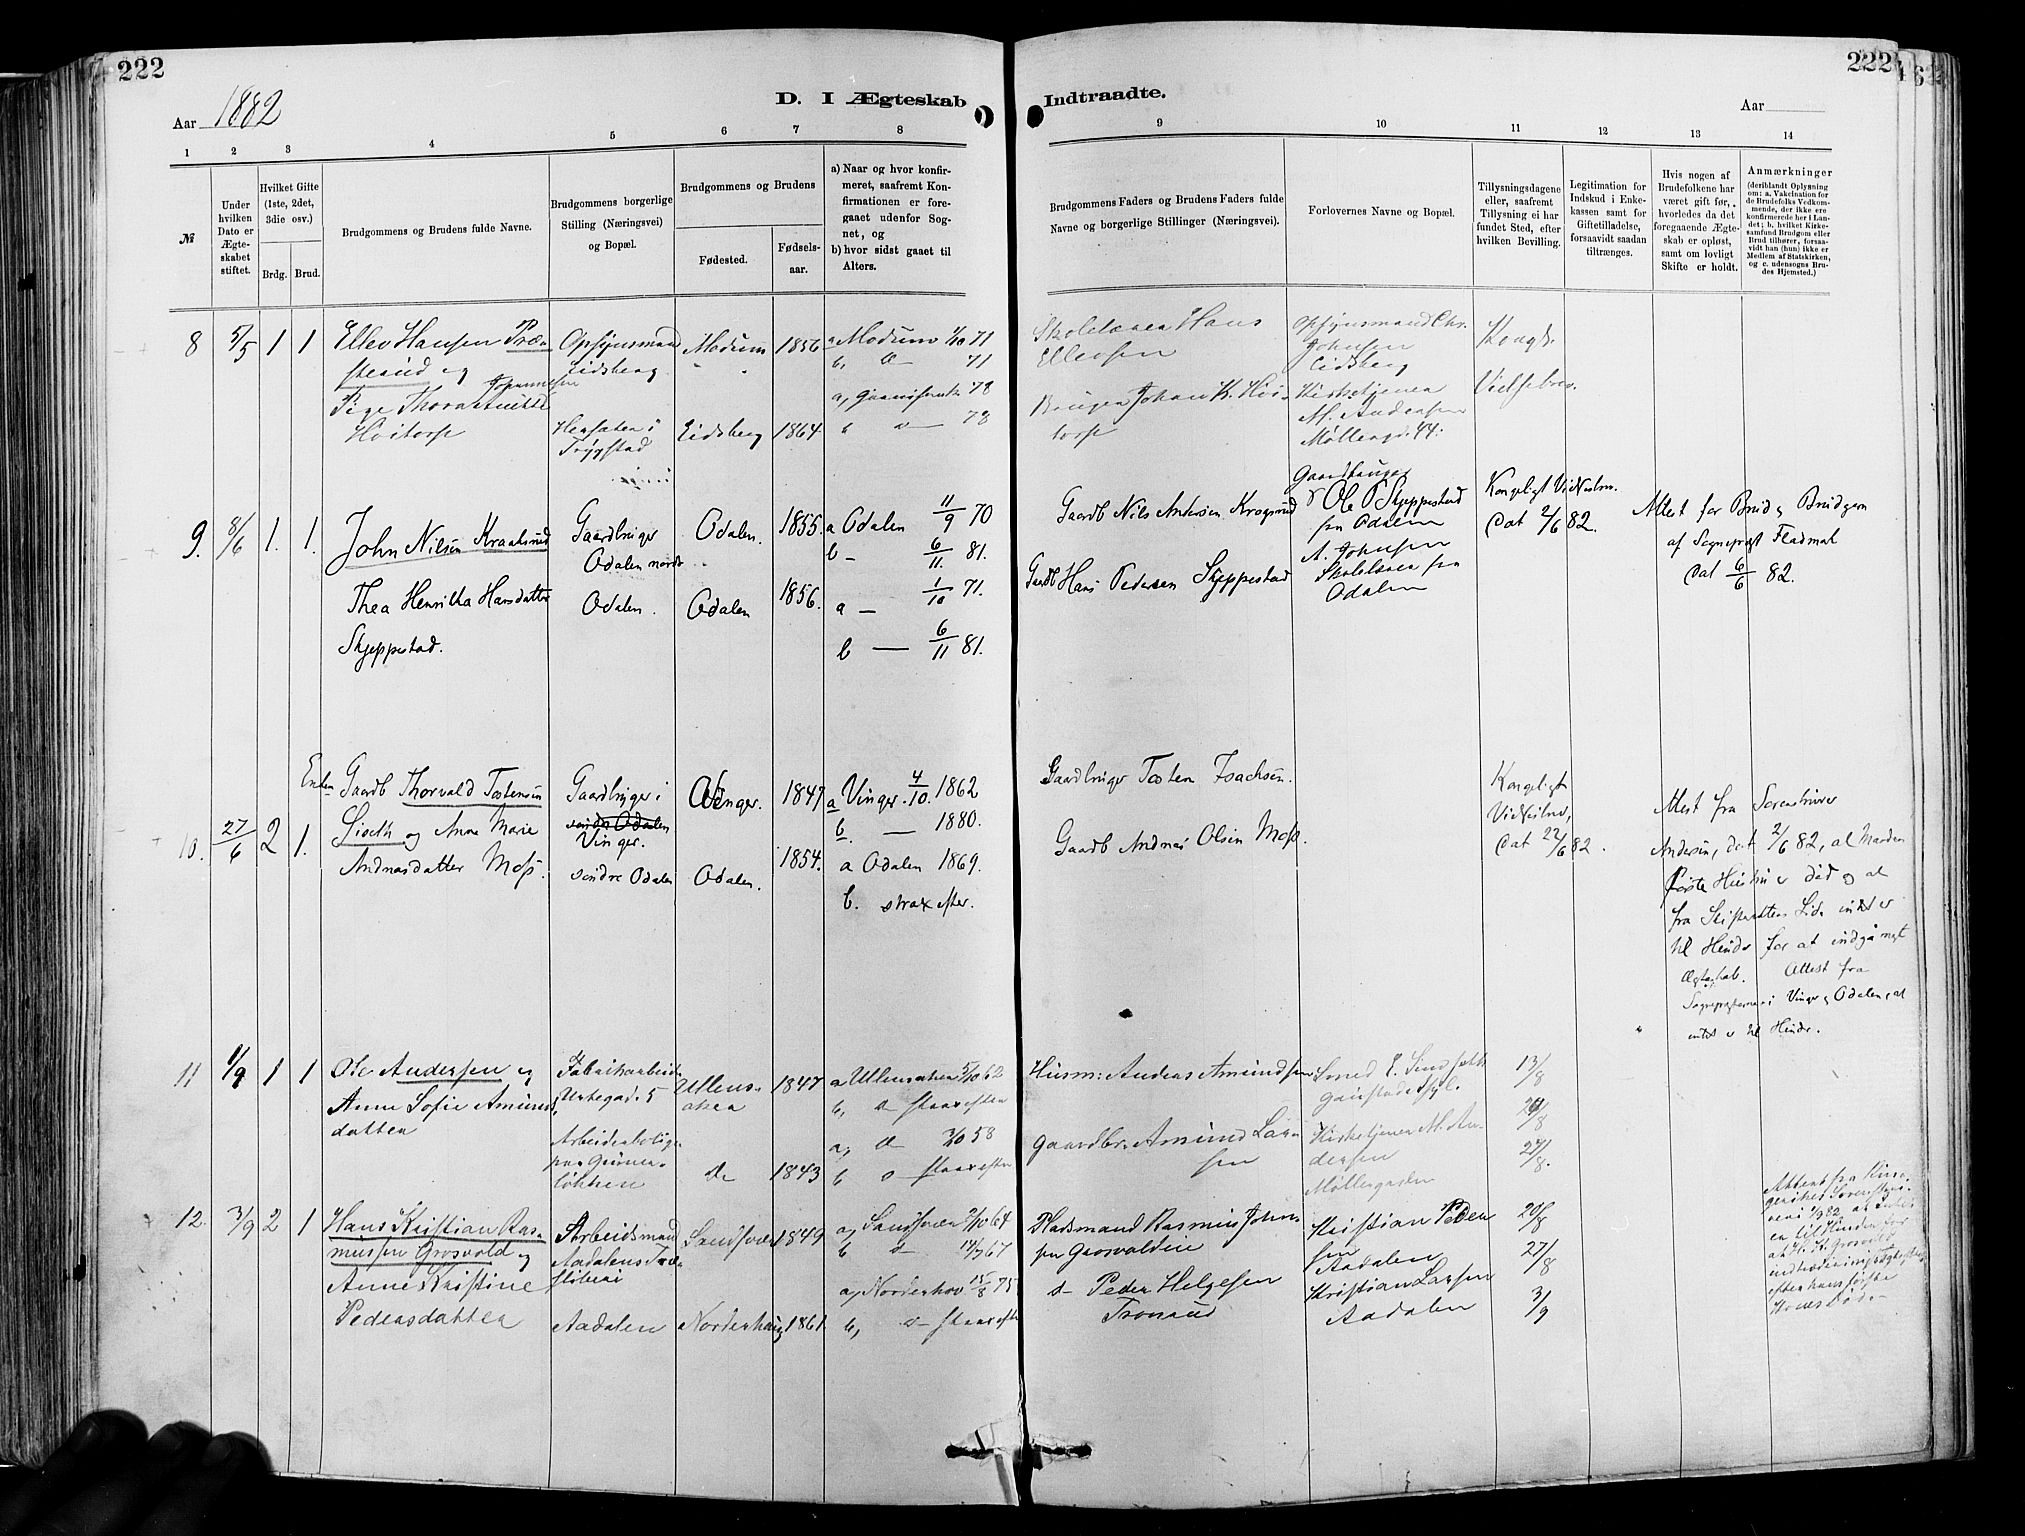 222
222
Aar 1882
D. I Ægteskab
Indtraadte.
Aar
1 2 3 4 5 6 7 8 9 10 11 12 13 14
№
Under
hvilken
Dato er
Ægte-
skabet
stiftet.
Hvilket Gifte
(1ste, 2det,
3die osv.)
Brdg. Brud.
Brudgommens og Brudens fulde Navne.
Brudgommens borgerlige
Stilling (Næringsvei)
og Bopæl.
Brudgommens og Brudens
Fødested.
Fødsels-
aar.
a) Naar og hvor konfir-
meret, saafremt Kon-
firmationen er fore-
gaaet udenfor Sog-
net, og
b) hvor sidst gaaet til
Alters.
Brudgommens Faders og Brudens Faders fulde
Navne og borgerlige Stillinger (Næringsvei).
Forlovernes Navne og Bopæl.
Tillysningsdagene
eller, saafremt
Tillysning ei har
fundet Sted, efter
hvilken Bevilling.
Legitimation for
Indskud i Enke-
kassen samt for
Giftetilladelse,
forsaavidt saadan
tiltrænges.
Hvis nogen af
Brudefolkene har
været gift før,
hvorledes da det
foregaaende Ægte-
skab er opløst,
samt om lovligt
Skifte er holdt.
Anmærkninger
(deriblandt Oplysning
om: a. Vakcination for
de Brudefolks Vedkom-
mende, der ikke ere
konfirmerede her i Lan-
det; b. hvilket Kirke-
samfund Brudgom eller
Brud tilhører, forsaa-
vidt han (hun) ikke er
Medlem af Statskirken,
og c. udensogns Bru-
des Hjemsted.)
8 5/5 1 1
Ellev Hansen Præ-
sterud og
Johannesen
Pige Thora Amitte
Hoitorp
Opsynsmand
Eidsberg
Hersæter i
Trygstad
Modum 1856
Eidsberg 1864
a, Modum 1/10 71
b, d 71
78
b d 78
Skolelærer Hans
Ellevsen
Bruger Johan K. Hoi-
torp
Opsynsmand Chr.
Johnsen
Eidsberg
Kirketjener
M. Andersen
Møllergd. 44.
Kongl.
Vielsebrev.
9. 8/6 1. 1.
John Nilsen Kraaksrud
Thea Henrikka Hansdatter
Skjeppestad.
Gaardbruger
Odalen nordr
Odalen.
Odalen. 1855.
Odalen 1856.
a Odalen 11/9 70
b - 6/11 81.
a - 1/10 71.
b - 6/11 81.
Gaardb Nils Andersen Krogsrud
Gaardb Hans Pedersen Skjeppestad
Gaardbruger
Ole P Skjeppestad
fra Odalen
A. Johnsen
Skolelærer fra
Odalen
Kongeligt Vielsebrev.
Dat 2/6 82.
Attest for Brud og Brudgom
af Sognepræst Fladmal
Dat 6/6 82.
10. 27/6 2 1.
Enkem Gaardb Thorvald Tostensen
Liseth og Anne Marie
Andreasdatter Moss.
Gaardbruger i
søndre Odalen
Vinger.
søndre Odalen
Vinger. 1847
Odalen. 1854.
a Vinger. 4/10. 1862
b. - 1880.
a Odalen 1869.
b. strax efter.
Gaardbruger Tosten Isachsen.
Gaardb Andreas Olsen Moss.
Kongeligt
Vielsebrev,
Dat 22/6 82.
Attest fra Sorenskriver
Andersen, dat 2/6 82, at Manden
første Hustru er død og at
fra Skifterettens Side intet er
til Hinder for at indgå nyt
Ægteskab. Attest fra
Sognepresterne i Vinger og Odalen, at
intet er til Hinder.
11 1/9 1 1
Ole Andersen og
Anne Sofie Amunds
datter
Fabrikarbeider
Urtegad. 5
Arbeiderbolig
paa Grüner-
løkken
Ullens-
aker 1847
do 1843
a Ullensaker 5/10 62
b, d straxefter
a, d 3/10 58
b d straxefter
Husm: Anders Amundsen
Gaardbr. Amund Lar-
sen
Smed
Gaustadasyl.
Kirketjener M. An-
dersen
Møllergaden
13/8
20/8
27/8.
12. 3/9 2 1
Hans Kristian Ras-
mussen Grosvold og
Anne Kristine
Pedersdatter
Arbeidsmand
Aadalens Træ-
sliberi
Aadalen
Sandsvær 1849
Norderhoug 1861
a, Sandsvær 2/10 64
b d 14/7 67
a, Norderhov 15/8 75
b, d straxefter
Pladsmand Rasmus John-
sen Grosvoldeie
d- Peder Helgesen
Tronrud
Kristian Peder
sen
Aadalen
Kristian Larsen
Aadalen
20/8
27/8
3/9
Attest fra Ring-
eriket Sorenskri-
veri 1/9 82 at Intet
er til Hinder for
at H. K. Grosvold
indtræder i nyt Ægteskab
efter hans første
Kones Død.